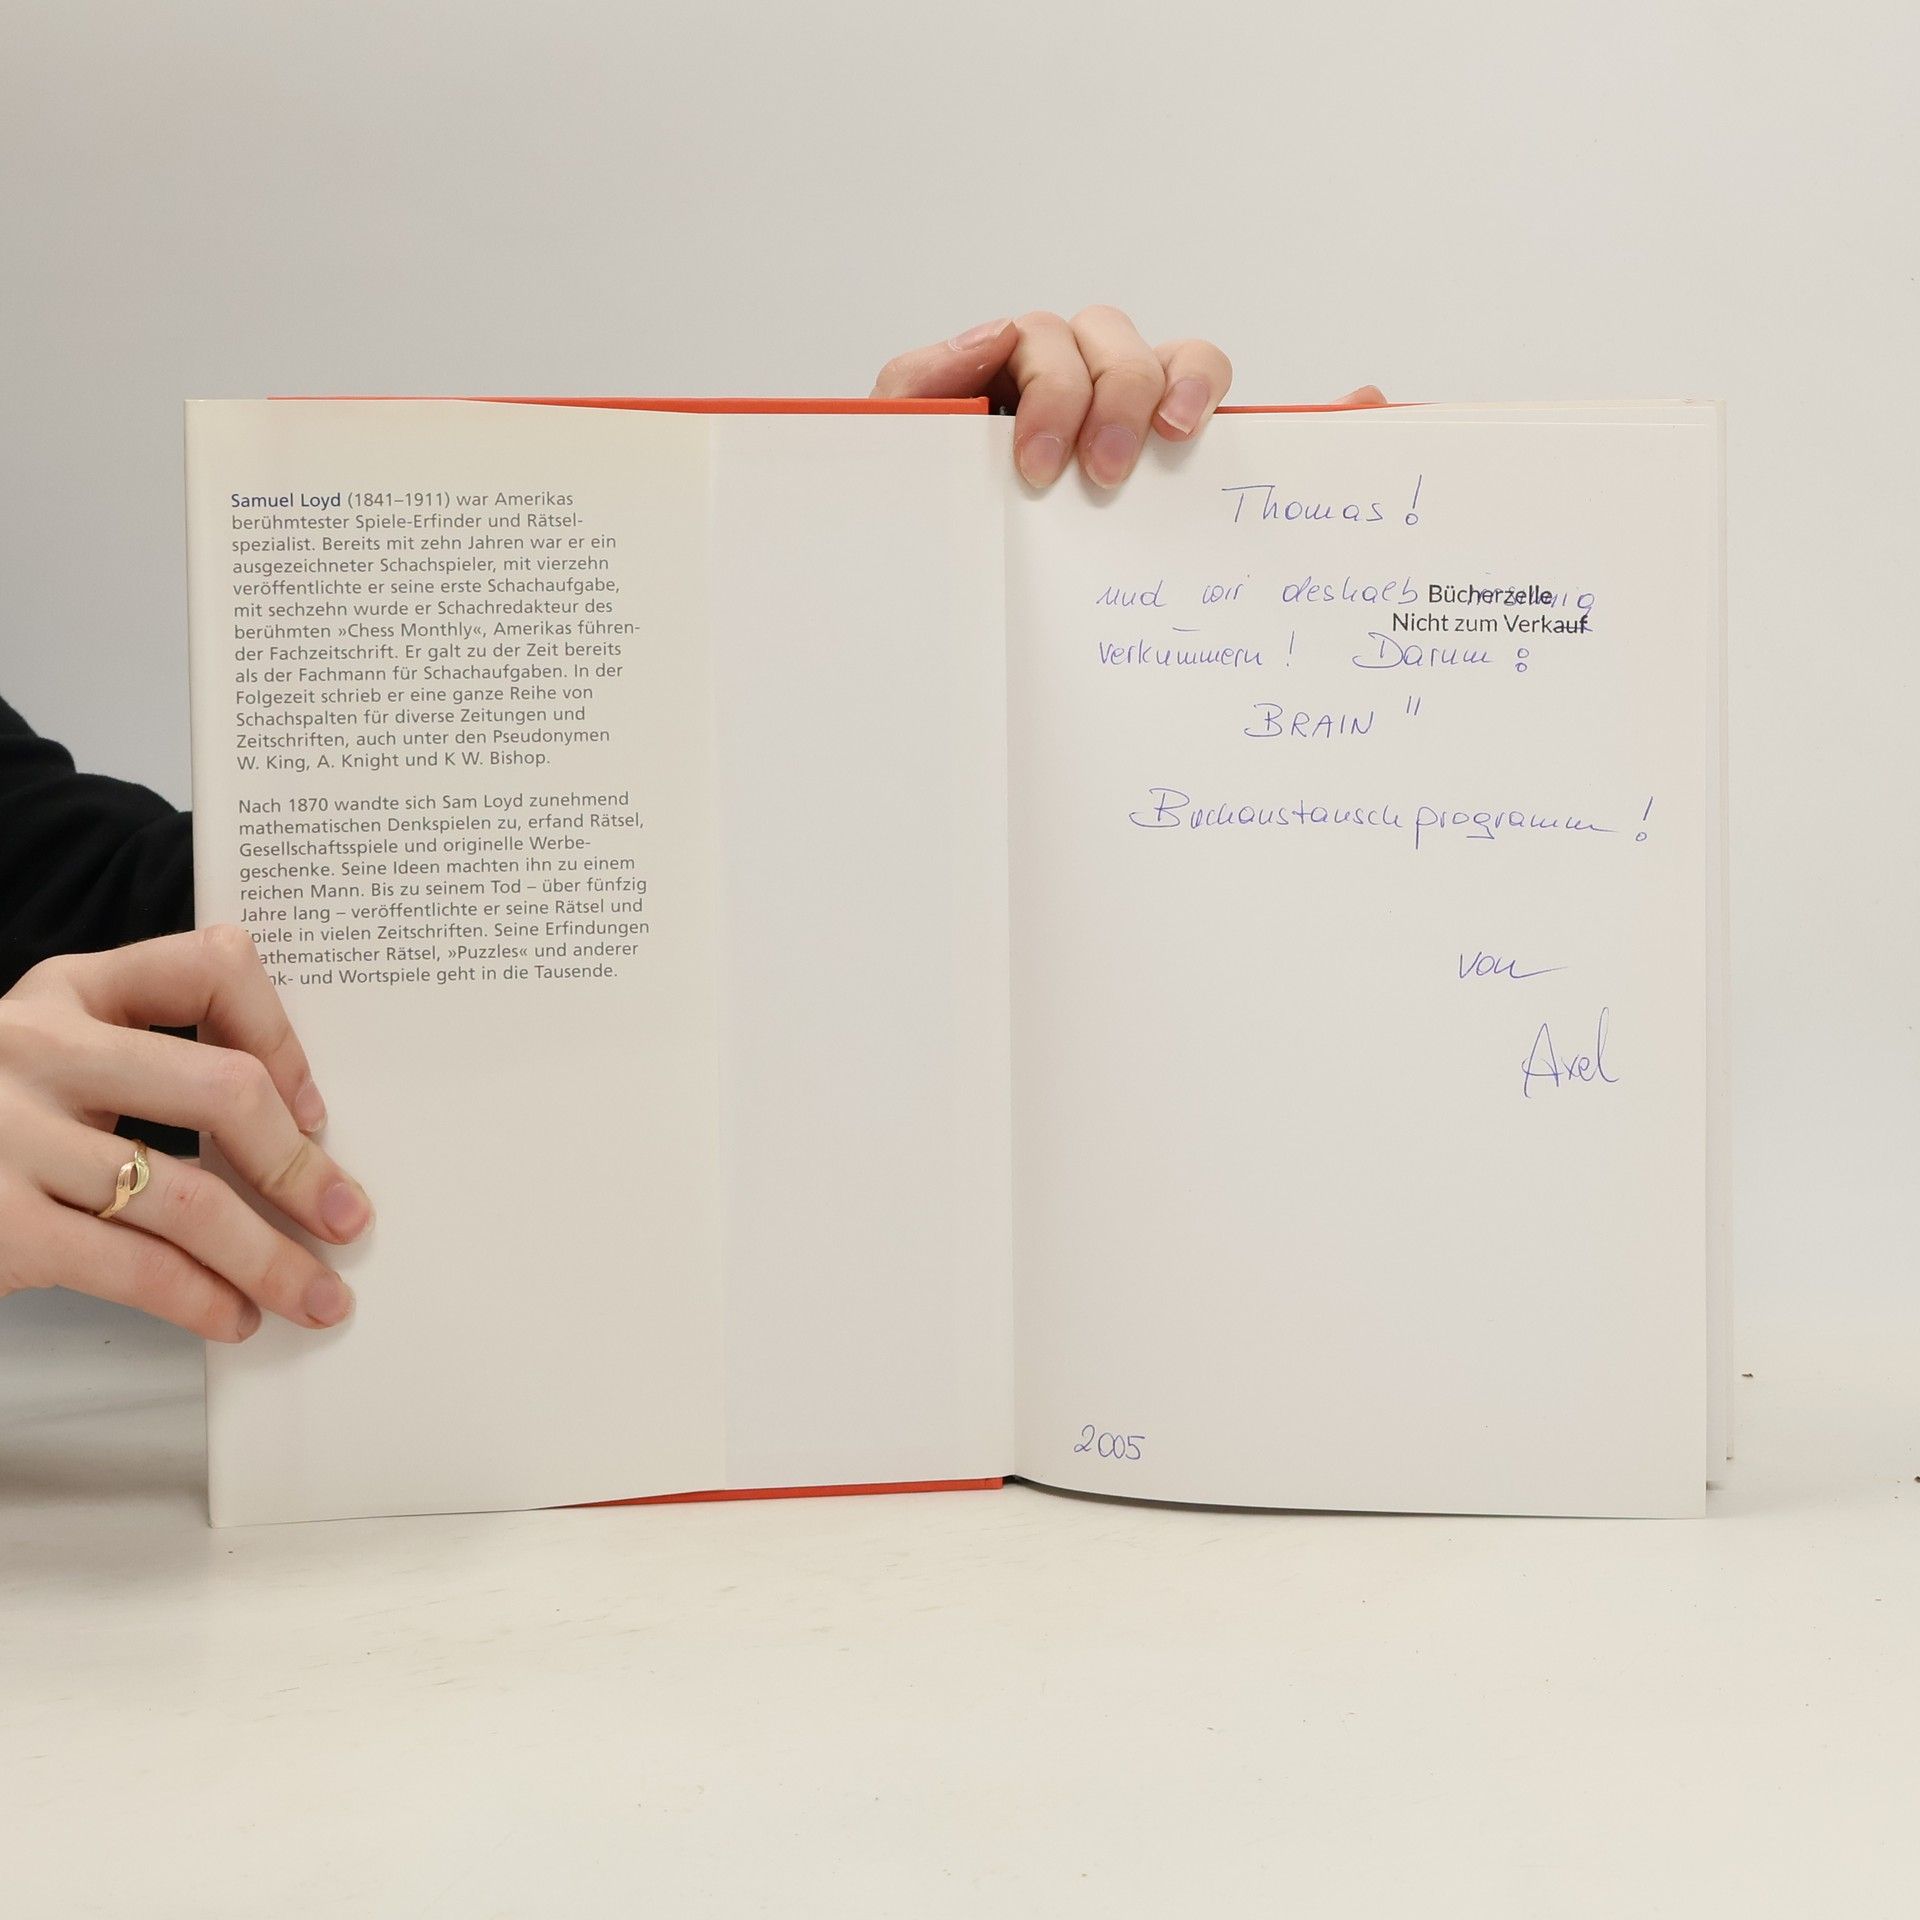 Samuel Loyd (1841–1911) war Amerikas
berühmtester Spiele-Erfinder und Rätsel-
spezialist. Bereits mit zehn Jahren war er ein
ausgezeichneter Schachspieler, mit vierzehn
veröffentlichte er seine erste Schachaufgabe,
mit sechzehn wurde er Schachredakteur des
berühmten »Chess Monthly«, Amerikas führen-
der Fachzeitschrift. Er galt zu der Zeit bereits
als der Fachmann für Schachaufgaben. In der
Folgezeit schrieb er eine ganze Reihe von
Schachspalten für diverse Zeitungen und
Zeitschriften, auch unter den Pseudonymen
W. King, A. Knight und K W. Bishop.
Nach 1870 wandte sich Sam Loyd zunehmend
mathematischen Denkspielen zu, erfand Rätsel,
Gesellschaftsspiele und originelle Werbe-
geschenke. Seine Ideen machten ihn zu einem
reichen Mann. Bis zu seinem Tod – über fünfzig
Jahre lang – veröffentlichte er seine Rätsel und
piele in vielen Zeitschriften. Seine Erfindungen
athematischer Rätsel, »Puzzles« und anderer
nk- und Wortspiele geht in die Tausende.
Thomas!
und wir deshalb
Bücherzelle
Nicht zum Verkauf
verkümmern! Darum:
BRAIN "
Buchaustauschprogramm!
von
Axel
2005